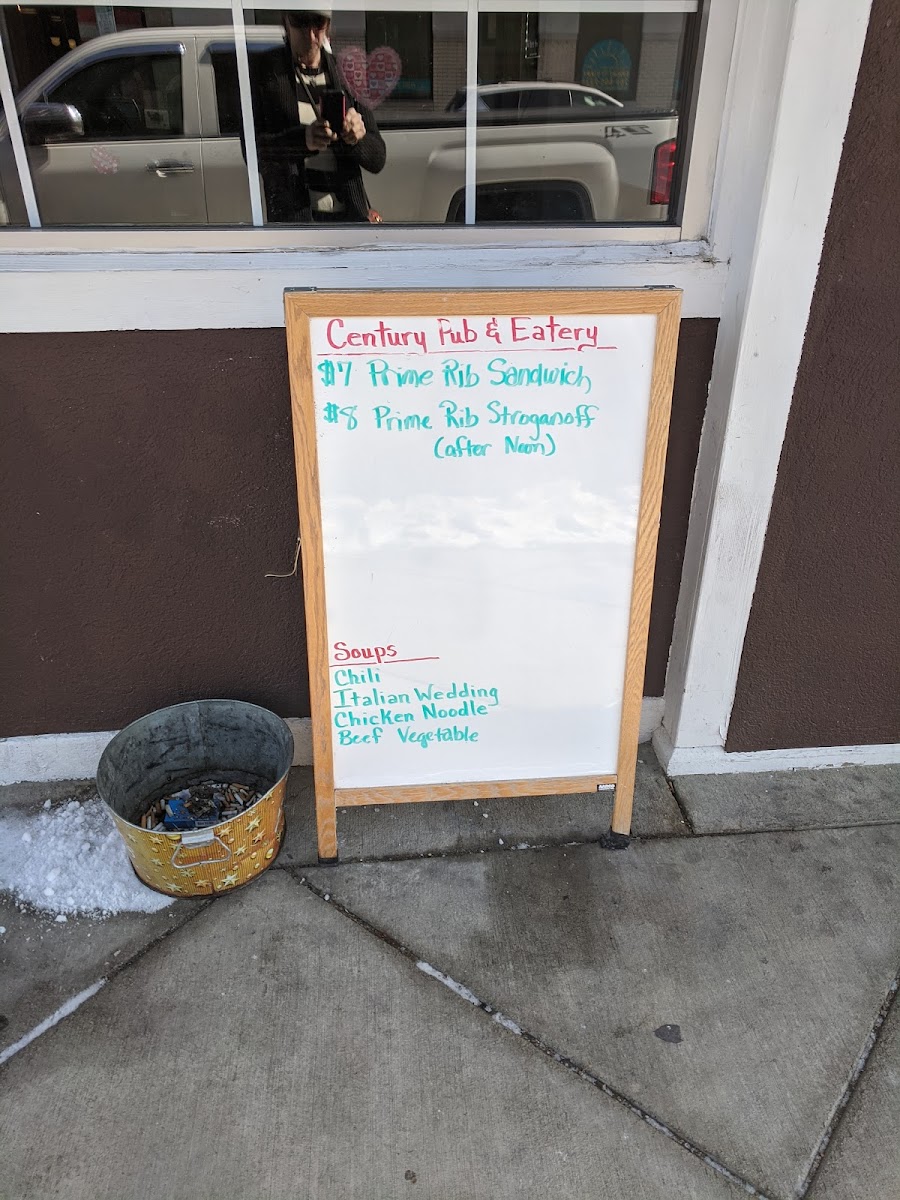 Century Pub & Eatery
$7 Prime Rib Sandwich
$8 Prime Rib Stroganoff
(after Noon)
Soups
Chili
Italian Wedding
Chicken Noodle
Beef Vegetable